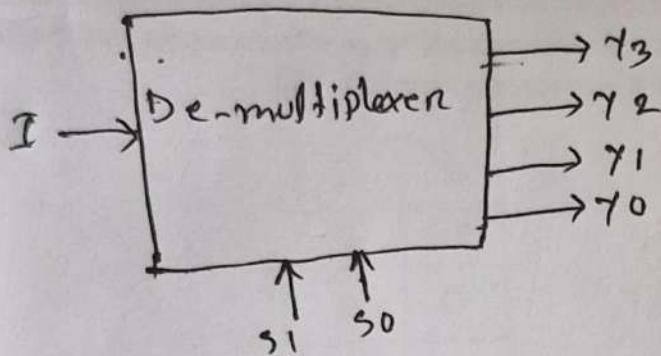 Y3
De-multiplexer
I
Y2
Y1
Y0
S1 S0